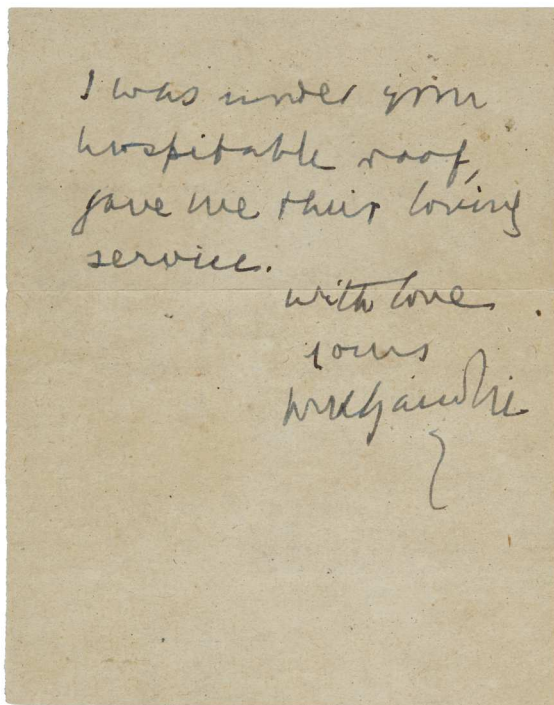 I was under your
hospitable roof,
gave me their loving
service.
with love
yours
MKGandhi